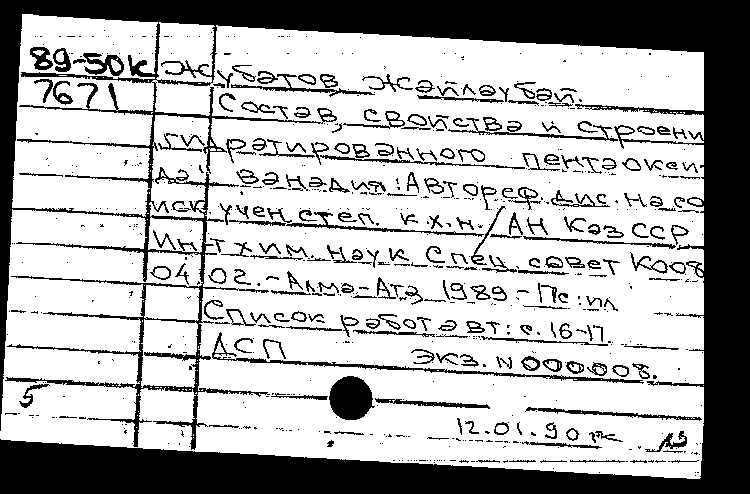 89-50к Жубатов, Жайлаубай.
7671 Состав, свойства и строени
„гидратированного пентаокси-
да" ванадия: Автореф. дис. на со
иск учен. степ. к.х.н. / АН КазССР
Ин-т хим. наук Спец. совет К008
04 02. - Алма-Ата, 1989 -
Список работ авт: с. 16-17
ДСП экз. N 000008.
5
12.01.90